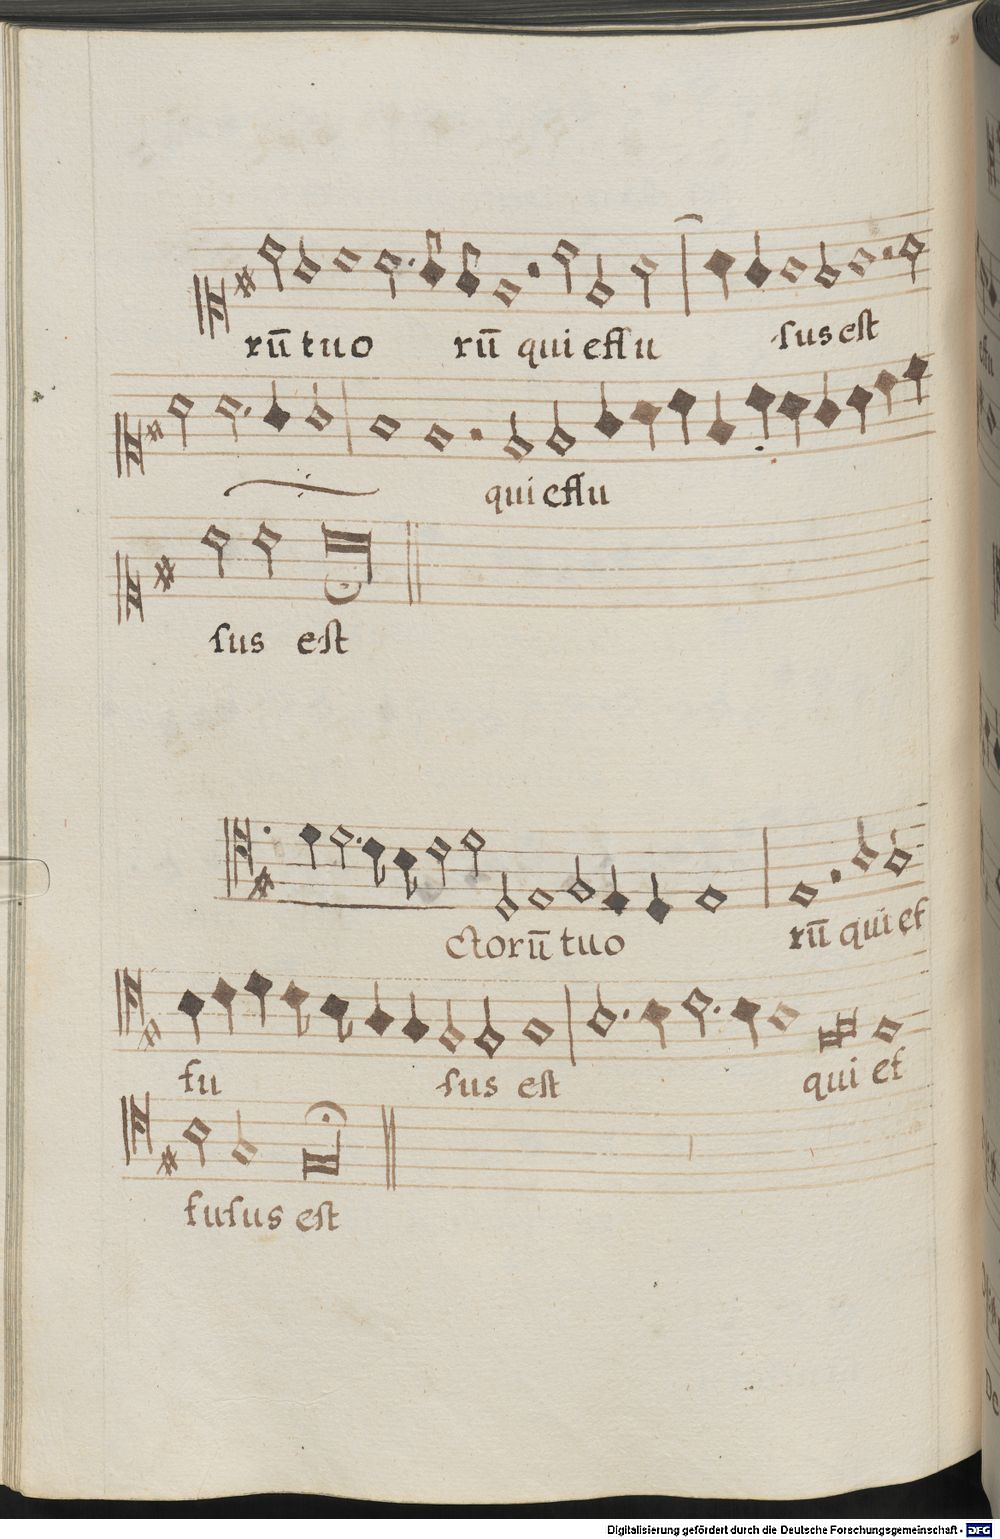 rū tuo rū qui effu sus est
qui effu
sus est
ctorū tuo rū qui ef
fu sus est qui ef
fusus est
Digitalisierung gefördert durch die Deutsche Forschungsgemeinschaft - DFG